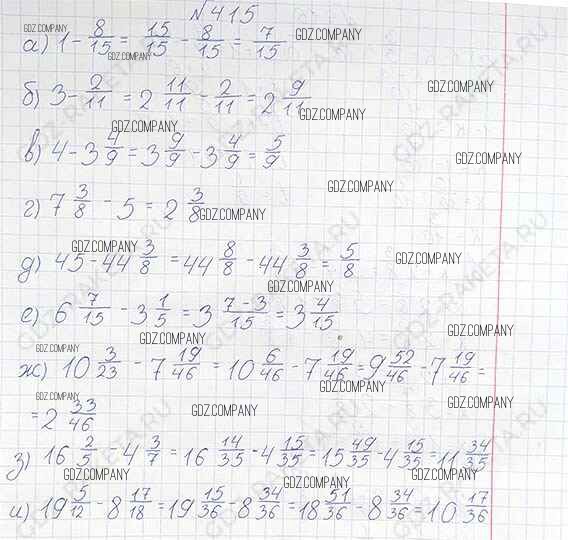 №415
GDZ.COMPANY
а) 1 - 8/15 = 15/15 - 8/15 = 7/15 GDZ.COMPANY
GDZ.COMPANY
б) 3 - 2/11 = 2 11/11 - 2/11 = 2 9/11 GDZ.COMPANY
GDZ.COMPANY GDZ.COMPANY
в) 4 - 3 4/9 = 3 9/9 - 3 4/9 = 5/9 GDZ.COMPANY
GDZ.COMPANY
г) 7 3/8 - 5 = 2 3/8 GDZ.COMPANY
GDZ.COMPANY
д) 45 - 44 3/8 = 44 8/8 - 44 3/8 = 5/8 GDZ.COMPANY
GDZ.COMPANY
е) 6 7/15 - 3 1/5 = 3 7-3/15 = 3 4/15 GDZ.COMPANY
GDZ.COMPANY GDZ.COMPANY
ж) 10 3/23 - 7 19/46 = 10 6/46 - 7 19/46 = 9 52/46 - 7 19/46 =
GDZ.COMPANY GDZ.COMPANY
= 2 33/46 GDZ.COMPANY GDZ.COMPANY
з) 16 2/5 - 4 3/7 = 16 14/35 - 4 15/35 = 15 49/35 - 4 15/35 = 11 34/35
GDZ.COMPANY GDZ.COMPANY GDZ.COMPANY
и) 19 5/12 - 8 17/18 = 19 15/36 - 8 34/36 = 18 51/36 - 8 34/36 = 10 17/36
GDZ-RAKETA.RU